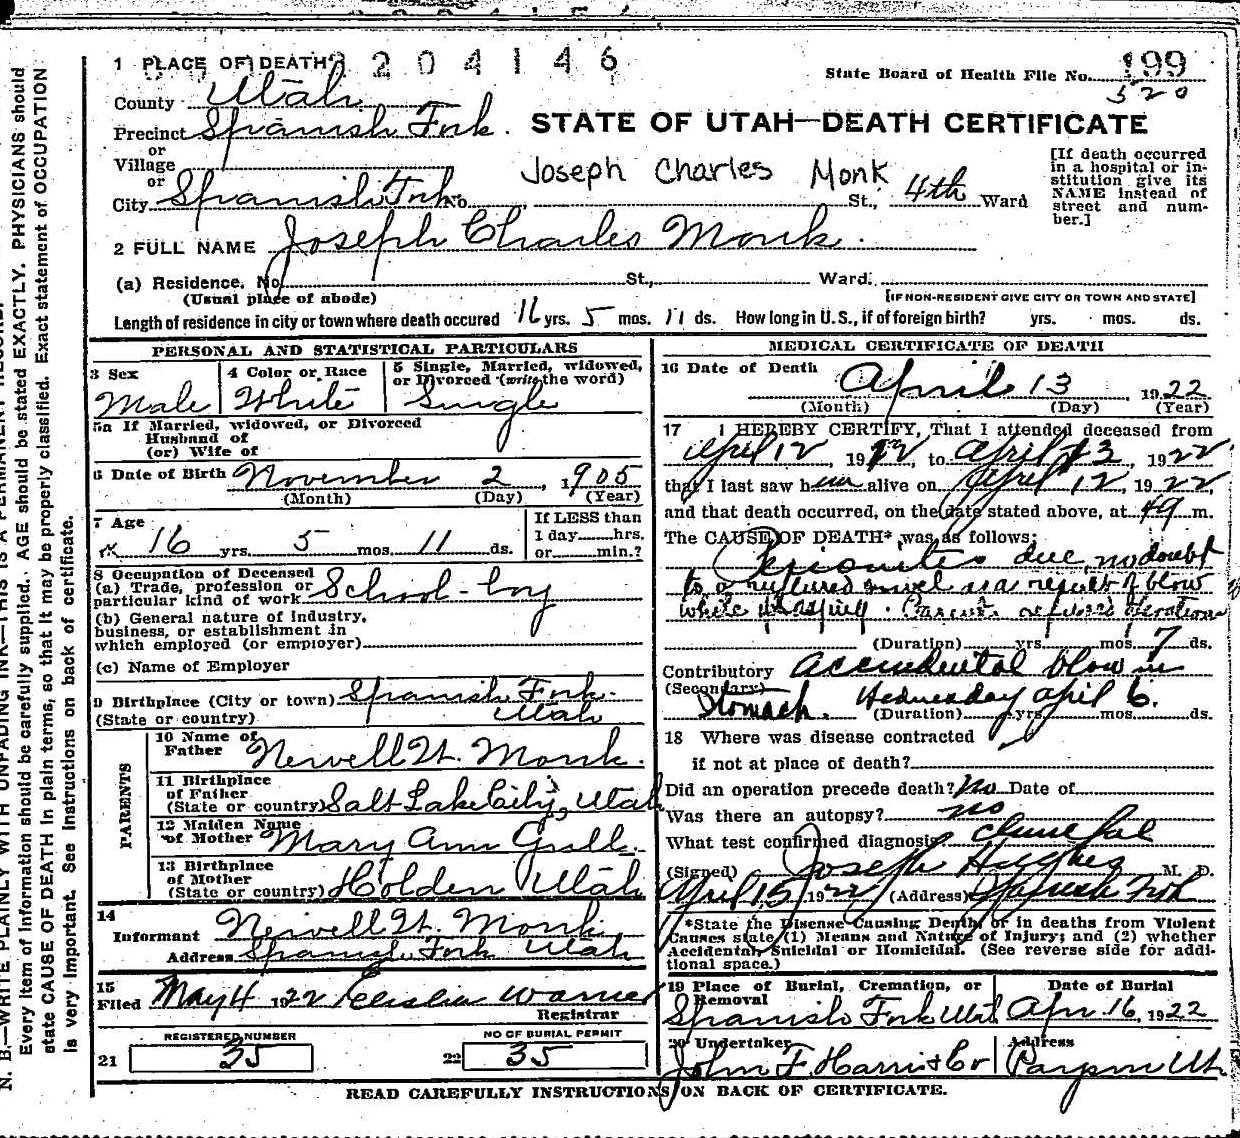 1 PLACE OF DEATH 3204146
State Board of Health File No. 199
520
County Utah
Precinct Spanish Fork.
STATE OF UTAH—DEATH CERTIFICATE
or
Village
or
Joseph Charles Monk
City Spanish Fork No. St., 4th Ward
[If death occurred
in a hospital or in-
stitution give its
NAME instead of
street and num-
ber.]
2 FULL NAME Joseph Charles Monk.
(a) Residence. No. St., Ward.
(Usual place of abode)
[IF NON-RESIDENT GIVE CITY OR TOWN AND STATE]
Length of residence in city or town where death occured 16 yrs. 5 mos. 11 ds. How long in U.S., if of foreign birth? yrs. mos. ds.
PERSONAL AND STATISTICAL PARTICULARS
3 Sex
Male
4 Color or Race
White
5 Single, Married, widowed,
or Divorced (write the word)
Single
5a If Married, widowed, or Divorced
Husband of
(or) Wife of
6 Date of Birth November 2, 1905
(Month) (Day) (Year)
7 Age
16 yrs. 5 mos. 11 ds.
If LESS than
1 day hrs.
or min.?
8 Occupation of Deceased
(a) Trade, profession or
particular kind of work School-boy
(b) General nature of Industry,
business, or establishment in
which employed (or employer)
(c) Name of Employer
9 Birthplace (City or town) Spanish Fork
(State or country) Utah
PARENTS
10 Name of
Father Newell H. Monk.
11 Birthplace
of Father
(State or country) Salt Lake City, Utah
12 Maiden Name
of Mother Mary Ann
13 Birthplace
of Mother
(State or country) Holden Utah
14
Informant Newell H. Monk
Address Spanish Fork Utah
15
Filed May 4, 1922 Warner
Registrar
REGISTERED NUMBER
21 35
NO OF BURIAL PERMIT
22 35
MEDICAL CERTIFICATE OF DEATH
16 Date of Death April 13, 1922
(Month) (Day) (Year)
17 I HEREBY CERTIFY, That I attended deceased from
April 12, 1922, to April 13, 1922
that I last saw him alive on April 12, 1922,
and that death occurred, on the date stated above, at m.
The CAUSE OF DEATH*, was as follows:
due, no doubt
to a ruptured as a result of blow
while. Parents refused operation
(Duration) yrs. mos. 7 ds.
Contributory accidental blow in
(Secondary)
Stomach. Wednesday April 6.
(Duration) yrs. mos. ds.
18 Where was disease contracted
if not at place of death?
Did an operation precede death? No Date of
Was there an autopsy? no
What test confirmed diagnosis
(Signed) Joseph Hughes M. D.
April 15, 1922 (Address) Spanish Fork
*State the Disease Causing Death, or in deaths from Violent
Causes state (1) Means and Nature of Injury; and (2) whether
Accidental, Suicidal or Homicidal. (See reverse side for addi-
tional space.)
19 Place of Burial, Cremation, or
Removal
Spanish Fork Utah
Date of Burial
Apr. 16, 1922
20 Undertaker
John F. Harris & Co
Address
Payson Ut.
READ CAREFULLY INSTRUCTIONS ON BACK OF CERTIFICATE.
N. B.—WRITE PLAINLY WITH UNFADING INK—THIS IS A PERMANENT RECORD.
Every item of information should be carefully supplied. AGE should be stated EXACTLY. PHYSICIANS should
state CAUSE OF DEATH in plain terms, so that it may be properly classified. Exact statement of OCCUPATION
is very important. See instructions on back of certificate.